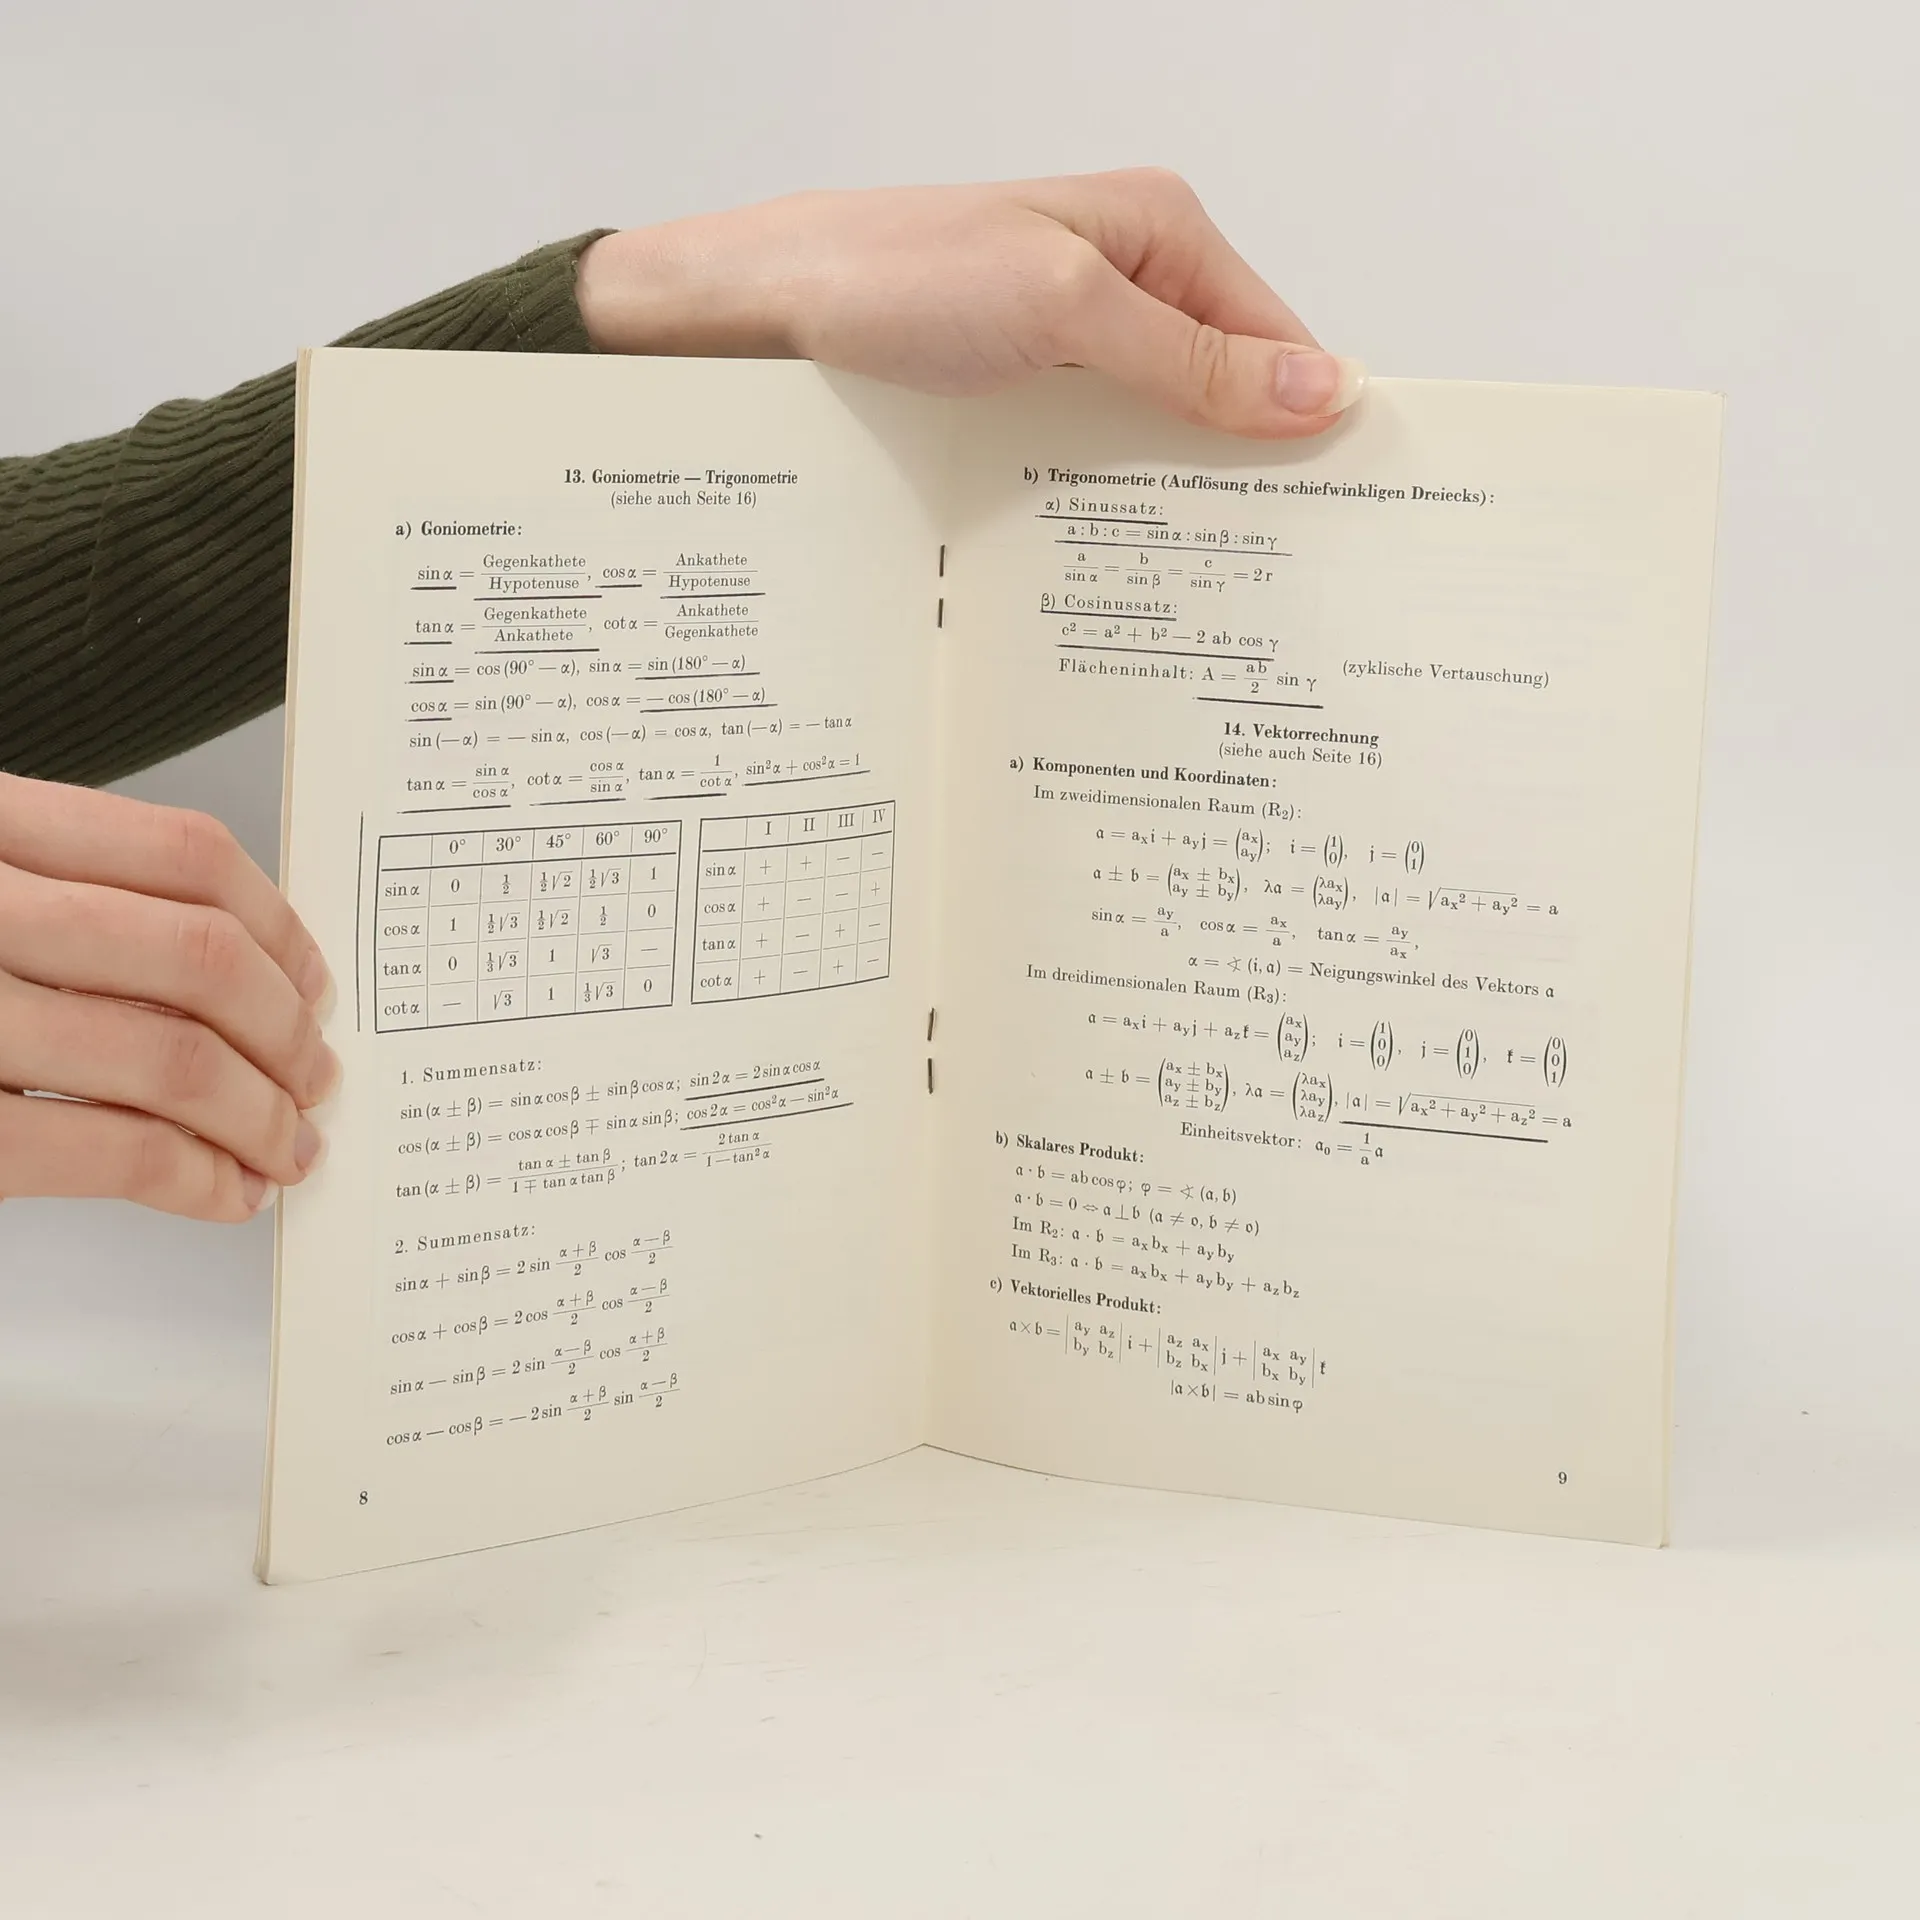 13. Goniometrie — Trigonometrie
(siehe auch Seite 16)
a) Goniometrie:
sin α = Gegenkathete/Hypotenuse, cos α = Ankathete/Hypotenuse
tan α = Gegenkathete/Ankathete, cot α = Ankathete/Gegenkathete
sin α = cos (90° — α), sin α = sin (180° — α)
cos α = sin (90° — α), cos α = — cos (180° — α)
sin (—α) = — sin α, cos (—α) = cos α, tan (—α) = — tan α
tan α = sin α/cos α, cot α = cos α/sin α, tan α = 1/cot α, sin²α + cos²α = 1
0° 30° 45° 60° 90°
sin α 0 1/2 1/2√2 1/2√3 1
cos α 1 1/2√3 1/2√2 1/2 0
tan α 0 1/3√3 1 √3 —
cot α — √3 1 1/3√3 0
I II III IV
sin α + + — —
cos α + — — +
tan α + — + —
cot α + — + —
1. Summensatz:
sin (α ± β) = sin α cos β ± sin β cos α; sin 2α = 2 sin α cos α
cos (α ± β) = cos α cos β ∓ sin α sin β; cos 2α = cos²α — sin²α
tan (α ± β) = (tan α ± tan β)/(1 ∓ tan α tan β); tan 2α = 2 tan α/(1 — tan² α)
2. Summensatz:
sin α + sin β = 2 sin (α + β)/2 cos (α — β)/2
cos α + cos β = 2 cos (α + β)/2 cos (α — β)/2
sin α — sin β = 2 sin (α — β)/2 cos (α + β)/2
cos α — cos β = — 2 sin (α + β)/2 sin (α — β)/2
8
b) Trigonometrie (Auflösung des schiefwinkligen Dreiecks):
α) Sinussatz:
a : b : c = sin α : sin β : sin γ
a/sin α = b/sin β = c/sin γ = 2 r
β) Cosinussatz:
c² = a² + b² — 2 ab cos γ
Flächeninhalt: A = ab/2 sin γ (zyklische Vertauschung)
14. Vektorrechnung
(siehe auch Seite 16)
a) Komponenten und Koordinaten:
Im zweidimensionalen Raum (R₂):
𝔞 = aₓ𝔦 + a_y𝔧 = (aₓ a_y); 𝔦 = (1 0), 𝔧 = (0 1)
𝔞 ± 𝔟 = (aₓ ± bₓ a_y ± b_y), λ𝔞 = (λaₓ λa_y), |𝔞| = √(aₓ² + a_y²) = a
sin α = a_y/a, cos α = aₓ/a, tan α = a_y/aₓ,
α = ∢ (𝔦, 𝔞) = Neigungswinkel des Vektors 𝔞
Im dreidimensionalen Raum (R₃):
𝔞 = aₓ𝔦 + a_y𝔧 + a_z𝔨 = (aₓ a_y a_z); 𝔦 = (1 0 0), 𝔧 = (0 1 0), 𝔨 = (0 0 1)
𝔞 ± 𝔟 = (aₓ ± bₓ a_y ± b_y a_z ± b_z), λ𝔞 = (λaₓ λa_y λa_z), |𝔞| = √(aₓ² + a_y² + a_z²) = a
Einheitsvektor: 𝔞₀ = 1/a 𝔞
b) Skalares Produkt:
𝔞 · 𝔟 = ab cos φ; φ = ∢ (𝔞, 𝔟)
𝔞 · 𝔟 = 0 ⇔ 𝔞 ⊥ 𝔟 (𝔞 ≠ 𝔬, 𝔟 ≠ 𝔬)
Im R₂: 𝔞 · 𝔟 = aₓbₓ + a_y b_y
Im R₃: 𝔞 · 𝔟 = aₓbₓ + a_y b_y + a_z b_z
c) Vektorielles Produkt:
𝔞 × 𝔟 = |a_y a_z b_y b_z| 𝔦 + |a_z aₓ b_z bₓ| 𝔧 + |aₓ a_y bₓ b_y| 𝔨
|𝔞 × 𝔟| = ab sin φ
9